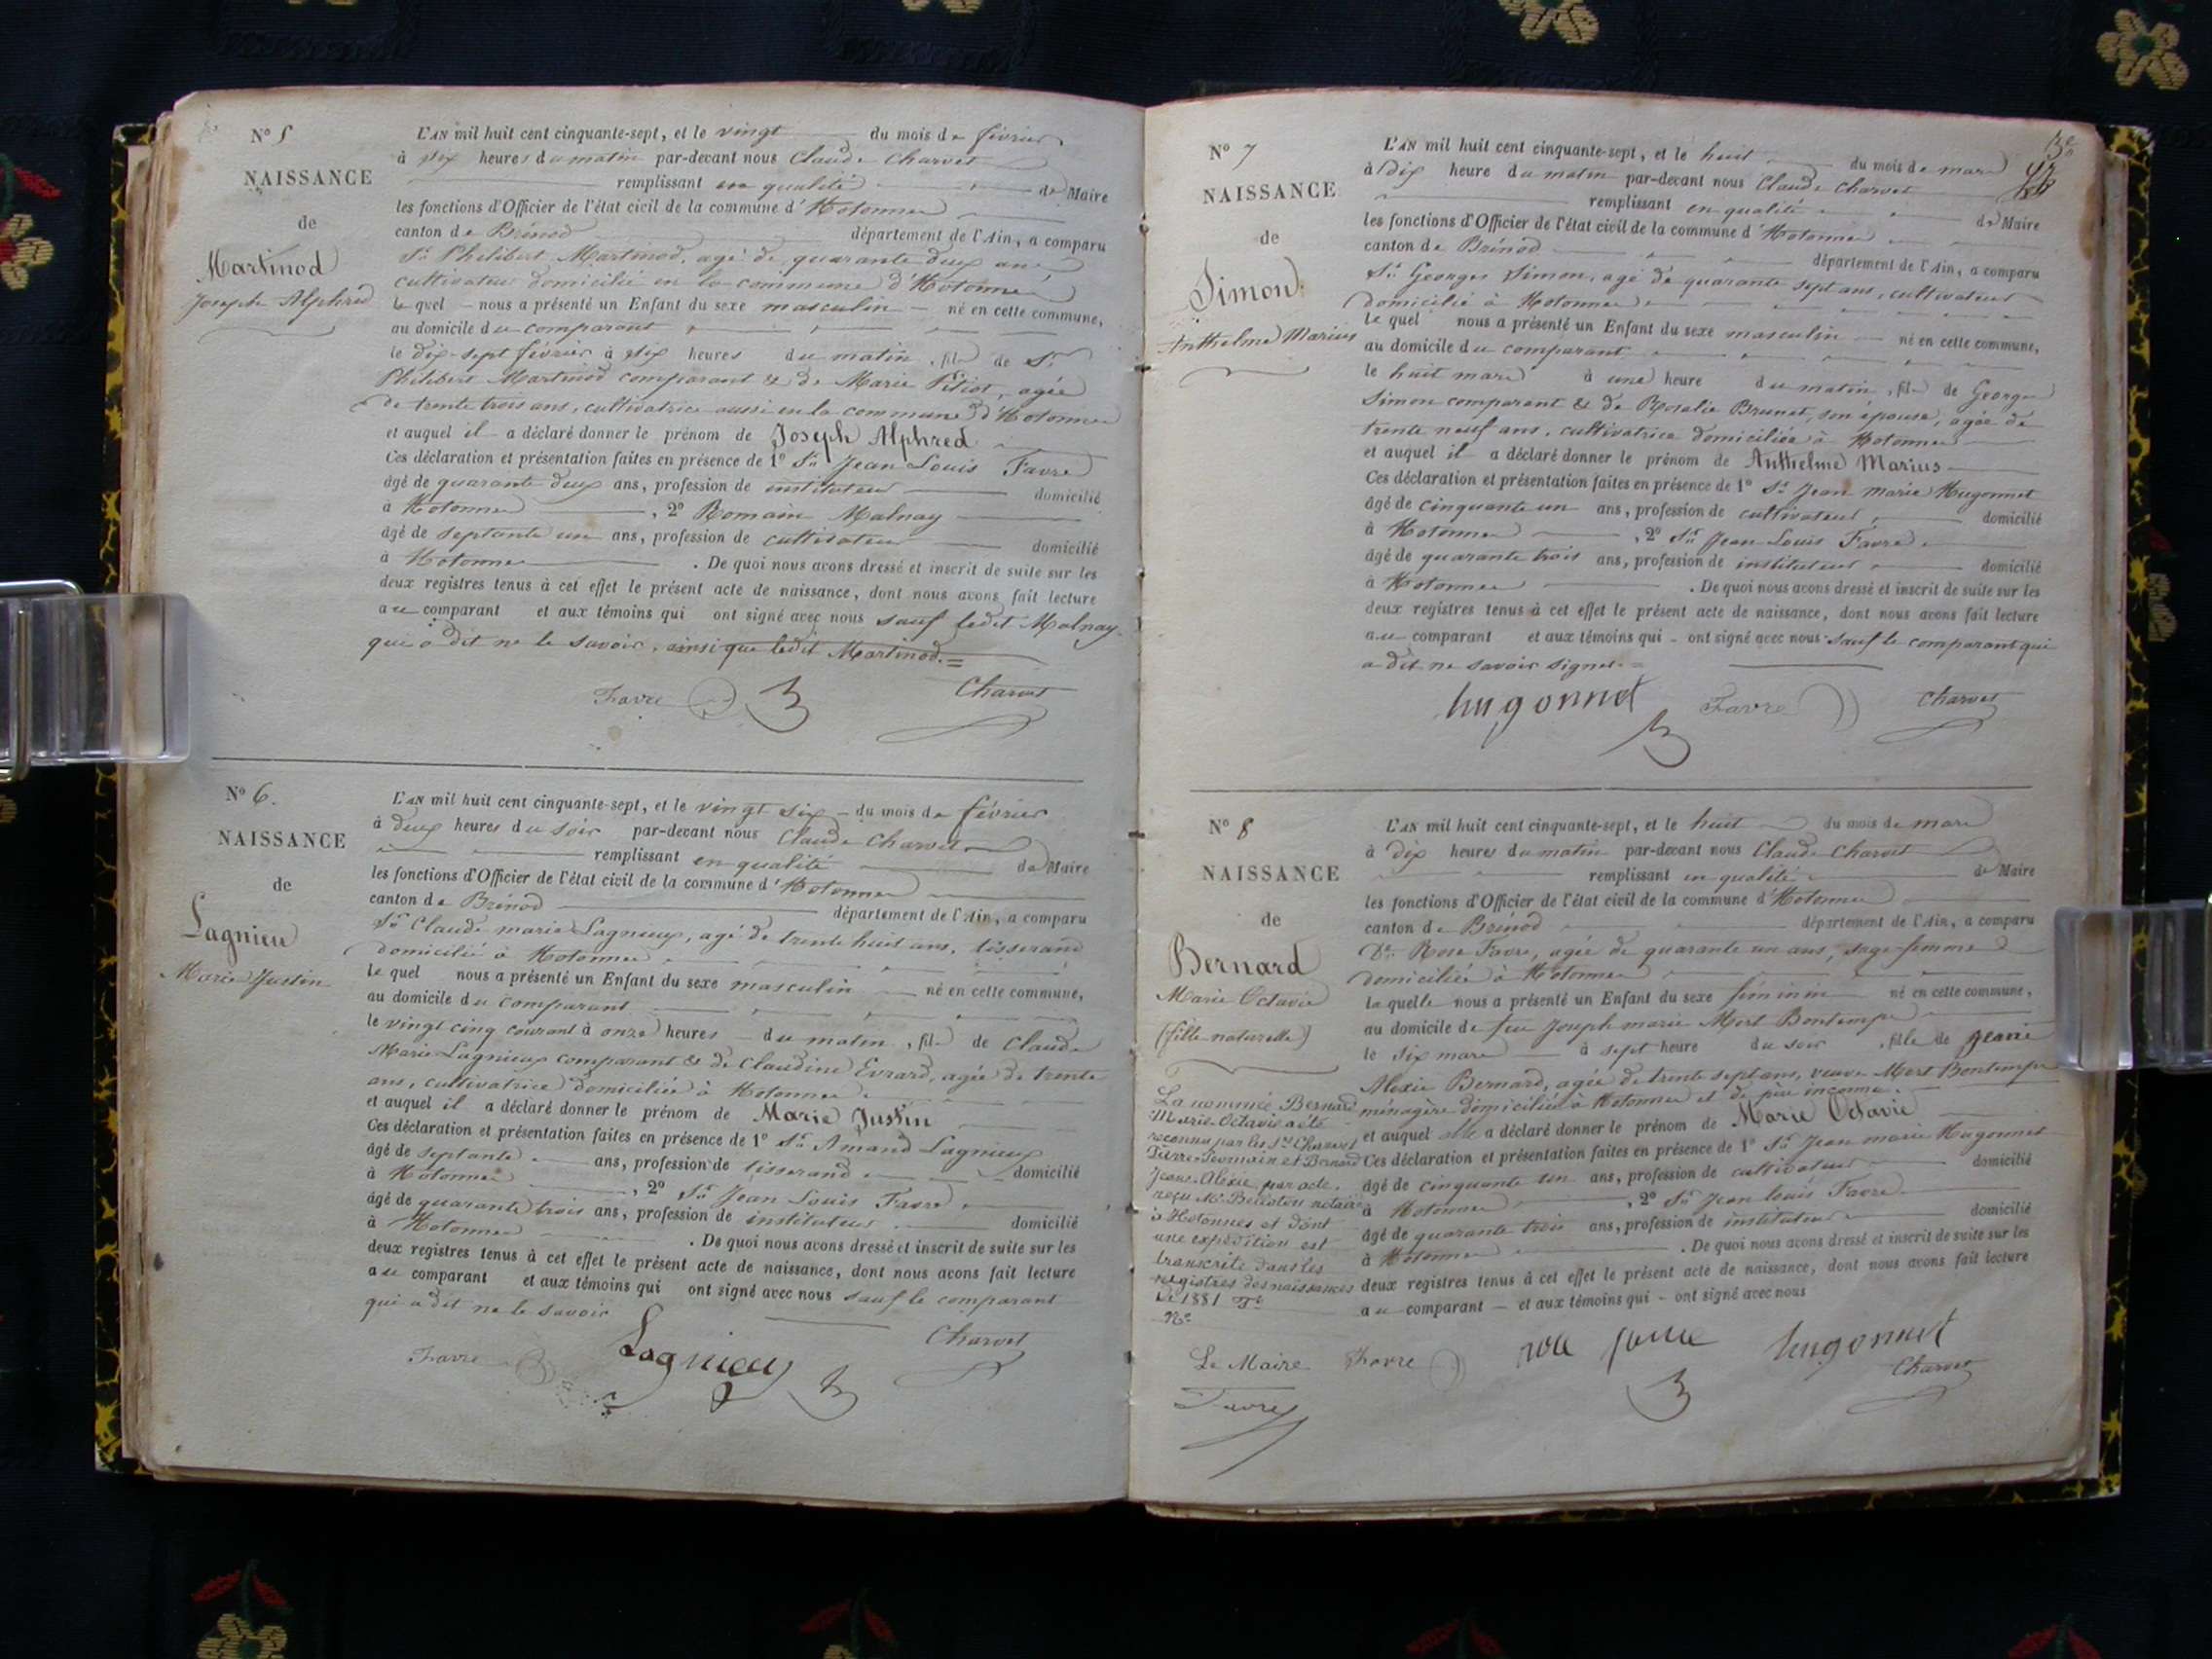 N° 5
NAISSANCE
de
Martinod
Joseph Alphred
L'AN mil huit cent cinquante-sept, et le vingt du mois de février
à dix heures du matin par-devant nous Claude Charvet
remplissant en qualité de Maire
les fonctions d'Officier de l'état civil de la commune d'Hotonnes
canton de Brénod département de l'Ain, a comparu
Sr Philibert Martinod, agé de quarante deux ans
cultivateur domicilié en la commune d'Hotonnes
le quel nous a présenté un Enfant du sexe masculin né en cette commune,
au domicile du comparant
le dix-sept février à six heures du matin, fils de Sr
Philibert Martinod comparant & de Marie Pitiot, agée
de trente trois ans, cultivatrice aussi en la commune d'Hotonnes
et auquel il a déclaré donner le prénom de Joseph Alphred
Ces déclaration et présentation faites en présence de 1° Sr Jean Louis Favre
âgé de quarante deux ans, profession de instituteur domicilié
à Hotonnes, 2° Romain Malnay
âgé de septante un ans, profession de cultivateur domicilié
à Hotonnes. De quoi nous avons dressé et inscrit de suite sur les
deux registres tenus à cet effet le présent acte de naissance, dont nous avons fait lecture
au comparant et aux témoins qui ont signé avec nous sauf ledit Malnay
qui a dit ne le savoir, ainsi que ledit Martinod.=
Favre Charvet
N° 6.
NAISSANCE
de
Lagnieu
Marie Justin
L'AN mil huit cent cinquante-sept, et le vingt six du mois de février
à deux heures du soir par-devant nous Claude Charvet
remplissant en qualité de Maire
les fonctions d'Officier de l'état civil de la commune d'Hotonnes
canton de Brénod département de l'Ain, a comparu
Sr Claude marie Lagnieux, agé de trente huit ans, tisserand
domicilié à Hotonnes
le quel nous a présenté un Enfant du sexe masculin né en cette commune,
au domicile du comparant
le vingt cinq courant à onze heures du matin, fils de Claude
Marie Lagnieux comparant & de Claudine Evrard, agée de trente
ans, cultivatrice domiciliée à Hotonnes
et auquel il a déclaré donner le prénom de Marie Justin
Ces déclaration et présentation faites en présence de 1° Sr Amand Lagnieux
âgé de septante ans, profession de tisserand domicilié
à Hotonnes, 2° Sr Jean Louis Favre
âgé de quarante trois ans, profession de instituteur domicilié
à Hotonnes. De quoi nous avons dressé et inscrit de suite sur les
deux registres tenus à cet effet le présent acte de naissance, dont nous avons fait lecture
au comparant et aux témoins qui ont signé avec nous sauf le comparant
qui a dit ne le savoir
Favre Lagnieu Charvet
N° 7
NAISSANCE
de
Simon
Anthelme Marius
L'AN mil huit cent cinquante-sept, et le huit du mois de mars
à dix heure du matin par-devant nous Claude Charvet
remplissant en qualité de Maire
les fonctions d'Officier de l'état civil de la commune d'Hotonnes
canton de Brénod département de l'Ain, a comparu
Sr Georges Simon, agé de quarante sept ans, cultivateur
domicilié à Hotonnes
le quel nous a présenté un Enfant du sexe masculin né en cette commune,
au domicile du comparant
le huit mars à une heure du matin, fils de George
Simon comparant & de Rosalie Brunet, son épouse, agée de
trente neuf ans, cultivatrice domiciliée à Hotonnes
et auquel il a déclaré donner le prénom de Anthelme Marius
Ces déclaration et présentation faites en présence de 1° Sr Jean marie Hugonnet
âgé de cinquante un ans, profession de cultivateur domicilié
à Hotonnes, 2° Sr Jean Louis Favre
âgé de quarante trois ans, profession de instituteur domicilié
à Hotonnes. De quoi nous avons dressé et inscrit de suite sur les
deux registres tenus à cet effet le présent acte de naissance, dont nous avons fait lecture
au comparant et aux témoins qui ont signé avec nous sauf le comparant qui
a dit ne savoir signer.=
hugonnet Favre Charvet
N° 8
NAISSANCE
de
Bernard
Marie Octavie
(fille naturelle)
La nommée Bernard
Marie-Octavie a été
reconnu par les Srs Charvet
Pierre-Romain et Bernard
Jeane-Alexie par acte
reçu Me Belloton notaire
à Hotonnes et dont
une expédition est
transcrite dans les
registres des naissances
de 1881
N°
Le Maire
Favre
L'AN mil huit cent cinquante-sept, et le huit du mois de mars
à dix heures du matin par-devant nous Claude Charvet
remplissant en qualité de Maire
les fonctions d'Officier de l'état civil de la commune d'Hotonnes
canton de Brénod département de l'Ain, a comparu
De Rose Favre, agée de quarante un ans, sage-femme
domiciliée à Hotonnes
la quelle nous a présenté un Enfant du sexe féminin né en cette commune,
au domicile de feu Joseph marie Mort Bontemps
le six mars à sept heure du soir, fille de Jeane
Alexie Bernard, agée de trente sept ans, veuve Mort Bontemps
ménagère domiciliée à Hotonnes et de père inconnu.
et auquel elle a déclaré donner le prénom de Marie Octavie
Ces déclaration et présentation faites en présence de 1° Sr Jean marie Hugonnet
âgé de cinquante un ans, profession de cultivateur domicilié
à Hotonnes, 2° Sr Jean louis Favre
âgé de quarante trois ans, profession de instituteur domicilié
à Hotonnes. De quoi nous avons dressé et inscrit de suite sur les
deux registres tenus à cet effet le présent acte de naissance, dont nous avons fait lecture
au comparant et aux témoins qui ont signé avec nous
Favre hugonnet
Charvet